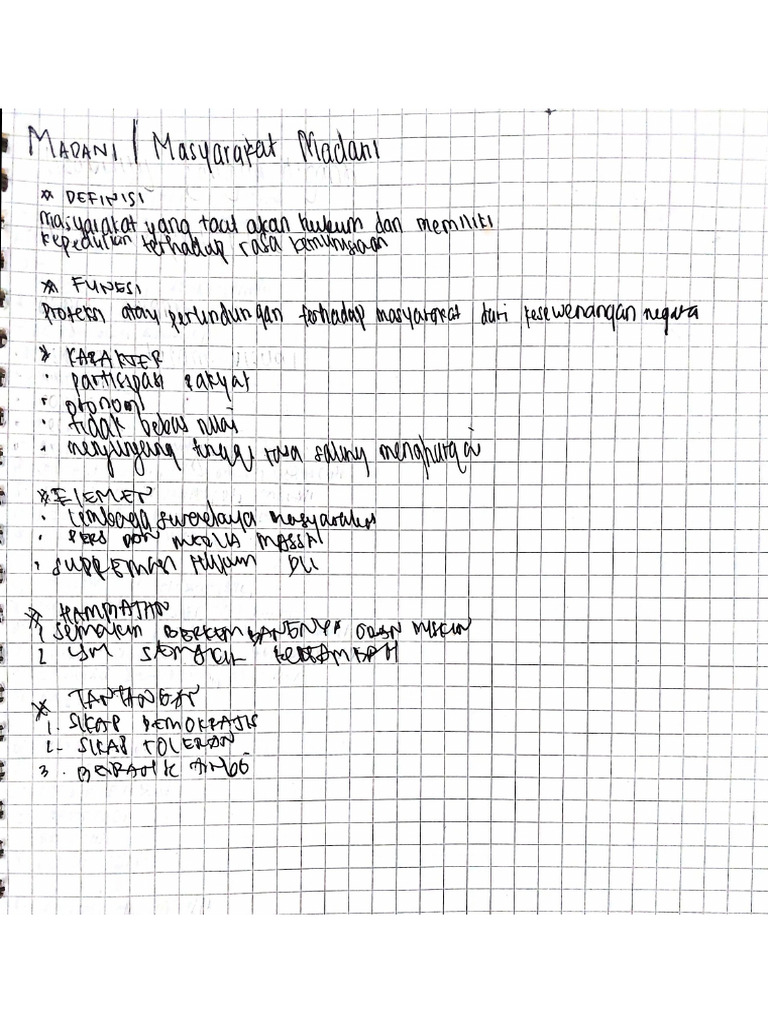 MADANI / Masyarakat Madani
* DEFINISI
Masyarakat yang taat akan hukum dan memiliki
kepedulian terhadap rasa kemanusiaan
* FUNGSI
Proteksi atau perlindungan terhadap masyarakat dari kesewenangan negara
* KARAKTER
· participasi rakyat
· otonomi
· tidak bebas nilai
· menjunjung tinggi rasa saling menghargai
* ELEMEN
· lembaga swadaya masyarakat
· PERS DAN MEDIA MASSA
· SUPREMASI HUKUM
* HAMBATAN
1 Semakin BERKEMBANGNYA ORAN MISKIN
2
* TANTANGAN
1. SIKAP DEMOKRATIS
2. SIKAP TOLERAN
3.